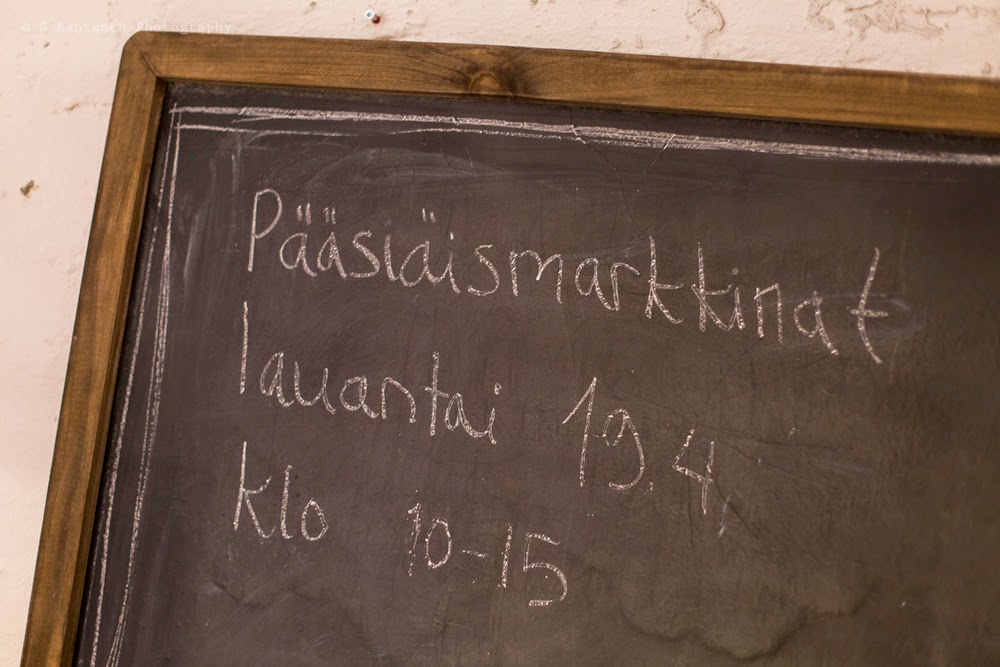 © S Rantanen Photography
Pääsiäismarkkinat
lauantai 19.4,
klo 10-15